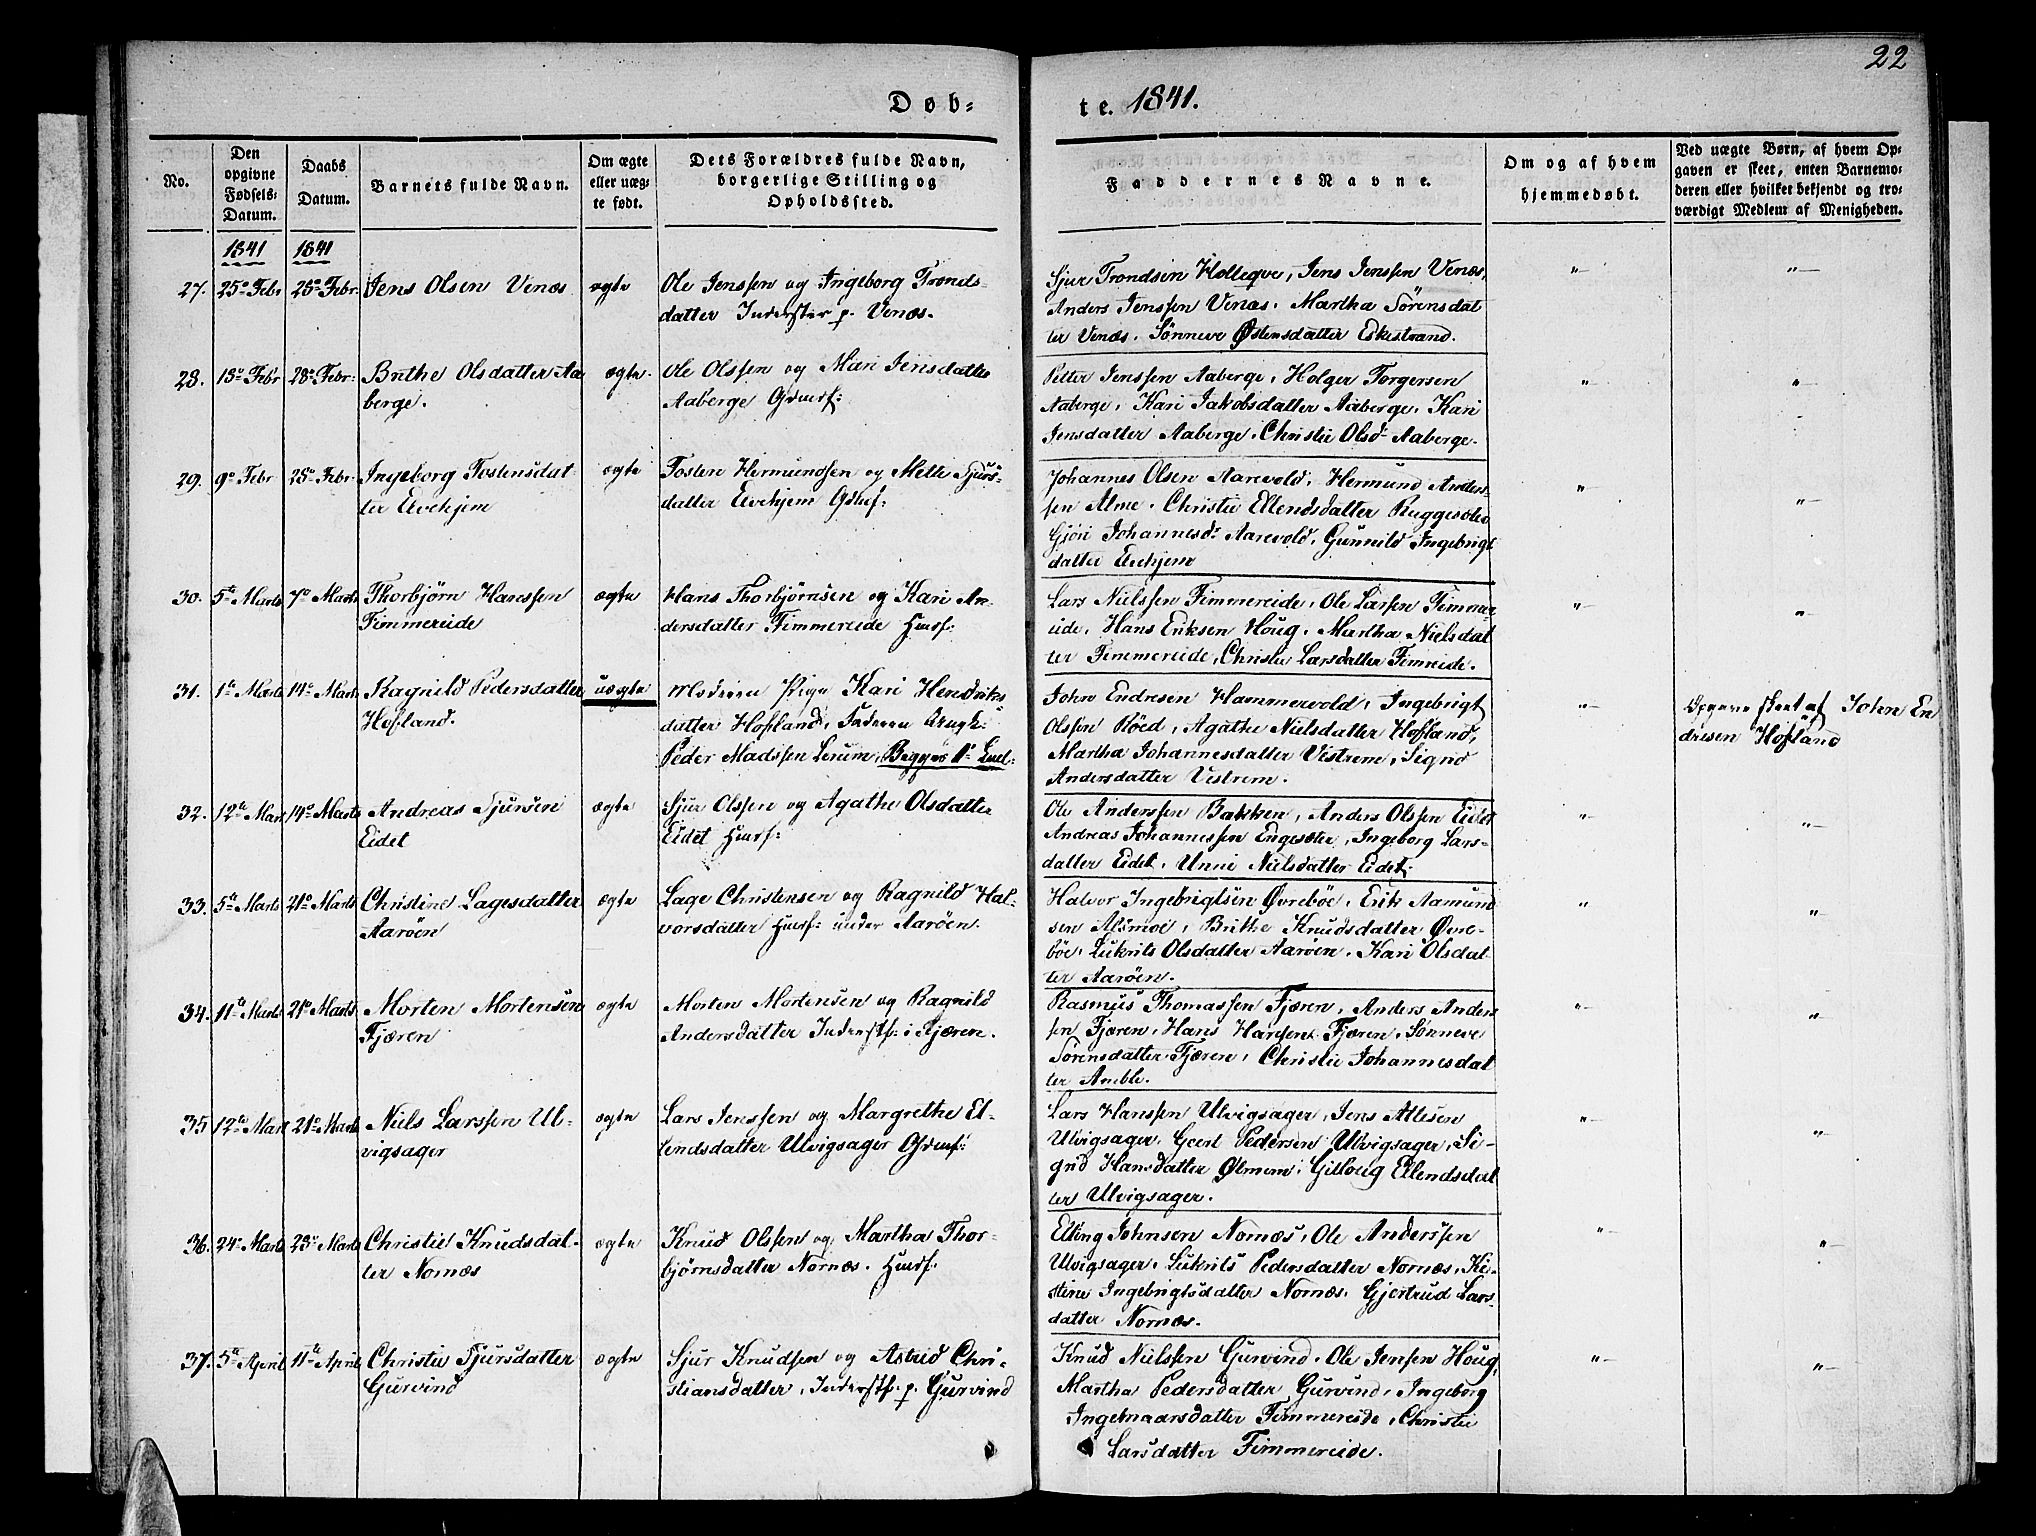 22
Døb-
te. 1841.
No.
Den opgivne Fødsels-Datum.
Daabs Datum.
Barnets fulde Navn.
Om ægte eller uæg-te født.
Dets Forældres fulde Navn, borgerlige Stilling og Opholdssted.
Faddernes Navne.
Om og af hvem hjemmedøbt.
Ved uægte Børn, af hvem Op-gaven er skeet, enten Barnemo-deren eller hvilket bekjendt og tro-værdigt Medlem af Menigheden.
1841 1841
27. 25de Febr 28de Febr. Jens Olsen Venæs ægte Ole Jenssen og Ingeborg Tronds-
datter Inderster p. Venæs.
Sjur Trondsen Kolleqve, Jens Jenssen Venæs, "— "—
Anders Jenssen Venæs. Martha Sörensdat
ter Venæs. Sönneve Østensdatter Eskestrand.
28. 18de Febr 28de Febr: Brithe Olsdatter Aa ægte. Ole Olssen og Mari Jensdatter
berge. Aaberge Gdmf:
Petter Jenssen Aaberge, Holger Torgersen "— "—
Aaberge, Kari Jakobsdatter Aaberge, Kari
Jensdatter Aaberge. Christie Olsd. Aaberge.
29. 9de Febr 28de Febr. Ingeborg Tostensdat- ægte Tosten Hermundsen og Mette Sjurs-
ter Elvehjem datter Elvehjem Gdmf:
Johannes Olsen Aarevold, Hermund Anders- "— "—
sen Alme. Christie Ellendsdatter Ruggesæter
Gjöri Johannesdr Aarevold, Gunnild Ingebrigt
datter Elvehjem
30. 5te Marts 7de Marts Thorbjørn Hanssen ægte Hans Thorbjörnsen og Kari An-
Fimmereide dersdatter Fimmereide Hmf:
Lars Nielssen Fimmereide, Ole Larsen Fimmer "— "—
eide, Hans Eriksen Houg. Martha Nielsdat
ter Fimmereide, Christie Larsdatter Fimreide.
31. 1te Marts 14de Marts Ragnild Pedersdatter uægte Moderen Pige Kari Hendriks
Hofland. datter Hofland, Faderen Ungk:
Peder Madssen Lerum, Begges 1te Leiel:
John Endresen Hammervold, Ingebrigt "— Opgave skeet af John En
Olssen Röed, Agathe Nielsdatter Hofland, dresen Hofland
Martha Johannesdatter Vestrem, Signe
Andersdatter Vestrem.
32. 12te Mart 14de Marts Andreas Sjursen ægte Sjur Olssen og Agathe Olsdatter
Eidet Eidet Hmf:
Ole Anderssen Bakken, Anders Olssen Eidet "— "—
Andreas Johannessen Engesæter, Ingeborg Lars-
datter Eidet, Unni Nielsdatter Eidet.
33. 5te Marts 21de Marts Christine Lagesdatter ægte Lage Christensen og Ragnild Hal-
Aaröen vorsdatter Hmf: under Aaröen.
Halvor Ingebrigtsen Øvreböe, Erik Aamund " "—
sen Alsmoe, Brithe Knudsdatter Øvre-
böe, Sukrits Olsdatter Aaröen, Kari Olsdat-
ter Aaröen.
34. 11te Marts 21de Marts Morten Mortensen ægte Morten Mortensen og Ragnild
Fjæren Andersdatter Inderstf: i Fjæren.
Rasmus Thomassen Fjæren, Anders Anders "— "—
sen Fjæren, Hans Hansen Fjæren, Sönneve
Sörensdatter Fjæren, Christie Johannesdat
ter Amble.
35 12te Mart 21de Marts Niels Larssen Ul- ægte Lars Jenssen og Margrethe El-
vigsager lendsdatter Ulvigsager Gdmf:
Lars Hanssen Ulvigsager, Jens Atlesen "— "—
Ulvigsager, Geert Pedersen Ulvigsager, Si-
gnd Hansdatter Ølmem, Gilloug Ellendsdat
ter Ulvigsager.
36. 24de Marts 28de Marts Christie Knudsdat- ægte Knud Olssen og Martha Thor-
ter Nornæs björnsdatter Nornæs. Hmf:
Elling Johnsen Nornæs, Ole Anderssen "— "—
Ulvigsager, Sukrits Pedersdatter Nornæs, Ki-
stine Ingebrigtsdatter Nornæs. Gjertrud Lars-
datter Nornæs.
37. 5te April 11te April Christie Sjursdatter ægte Sjur Knudsen og Astrid Chri-
Gurvind stiansdatter, Inderstf: p. Gurvind
Knud Nielssen Gurvind, Ole Jensen Houg, "— "—
Martha Pedersdatter Gurvind, Ingeborg
Ingelmaarsdatter Fimmereide, Christie
Larsdatter Fimmereide.